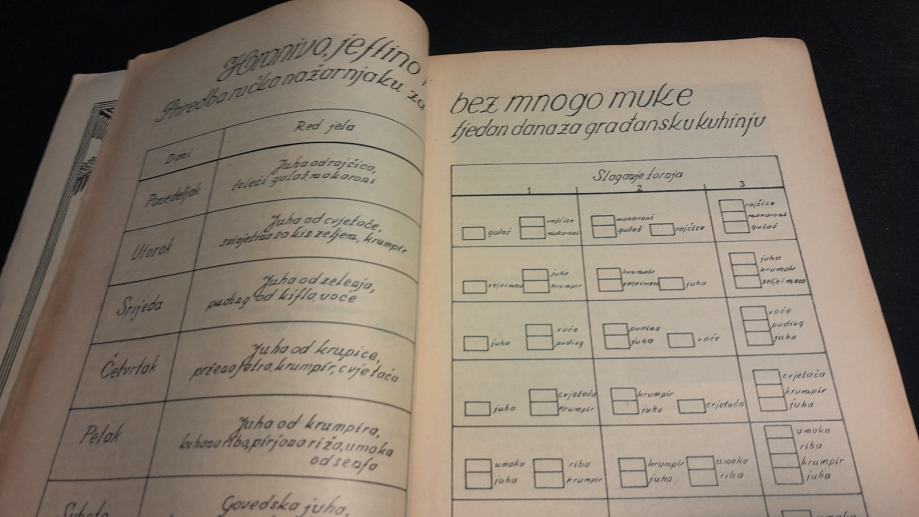 Hranivo, jeftino i
Priredba ručka na žarnjaku za
Dani
Red jela
Ponedeljak
Juha od rajčica,
teleći gulaš makaroni
Utorak
Juha od cvjetače,
svinjetina sa kis zeljem, krumpir
Srijeda
Juha od zelenja,
puding od kifla, voće
Četvrtak
Juha od krupice,
cvjetača
Petak
Juha od krumpira,
kuhana riba, pirjana riža, umaka
od senfa
Subota
Goveđska juha,
bez mnogo muke
tjedan dana za građansku kuhinju
Slaganje tornja
1 2 3
gulaš
rajčice
makaroni
makaroni
gulaš
rajčice
rajčice
makaroni
gulaš
juha
krumpir
krumpir
juha
juha
krumpir
zelje i meso
juha
voće
puding
puding
juha
voće
voće
puding
juha
juha
cvjetača
krumpir
krumpir
juha
cvjetača
cvjetača
krumpir
juha
umaka
juha
riba
krumpir
krumpir
juha
umaka
riba
umaka
riba
krumpir
juha
umaka